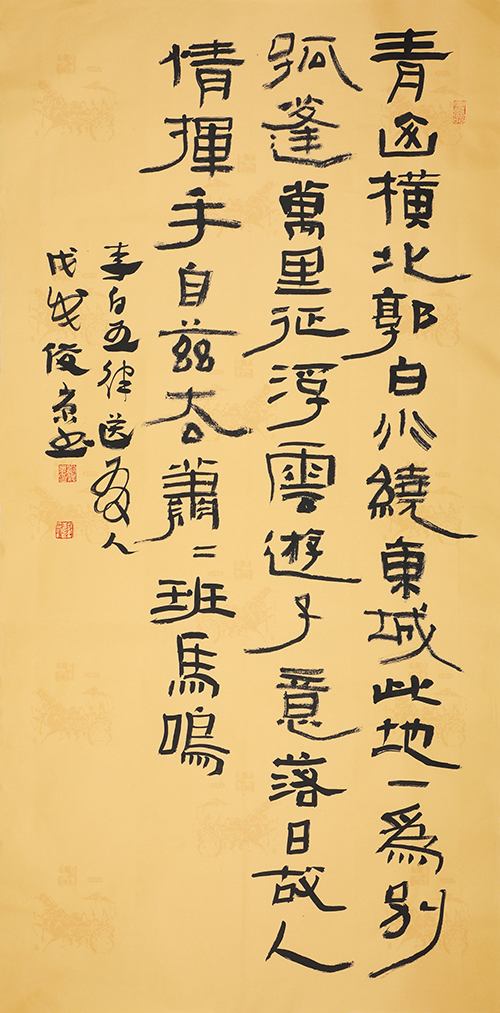 青山橫北郭白水繞東城此地一爲別
孤蓬萬里征浮雲遊子意落日故人
情揮手自茲去蕭〻班馬鳴
李白五律送友人
戊戌俊京书